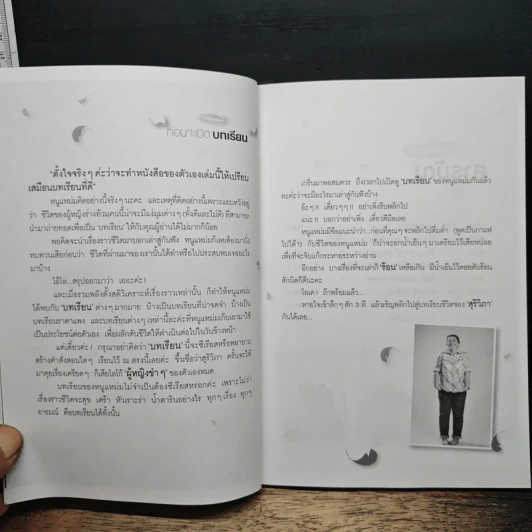 ก่อนจะเปิด บทเรียน
"ตั้งใจจริงๆ ค่ะว่าจะทำหนังสือของตัวเองเล่มนี้ให้เปรียบ
เสมือนบทเรียนที่ดี"
หนูแหม่มคิดอย่างนี้จริงๆนะคะ และเหตุที่คิดอย่างนี้เพราะแอบหวังอยู่
ว่า ชีวิตของผู้หญิงร่างท้วมคนนี้น่าจะมีแง่มุมต่างๆ (ทั้งดีและไม่ดี) ที่สามารถ
นำมาถ่ายทอดเพื่อเป็น 'บทเรียน' ให้กับคุณผู้อ่านได้ไม่มากก็น้อย
พอคิดจะนำเรื่องราวชีวิตมาบอกเล่าสู่กันฟัง หนูแหม่มก็เลยต้องมานั่ง
ทบทวนเสียก่อนว่า ชีวิตที่ผ่านมาของเรานั้นได้ทำหรือไปประสบพบเจออะไร
มาบ้าง
โอ้โห...สรุปออกมาว่า เยอะค่ะ!
และเมื่อรวมพลังตั้งสติวิเคราะห์เรื่องราวเหล่านั้น ก็ทำให้หนูแหม่ม
ได้พบกับ 'บทเรียน' ต่างๆ มากมาย บ้างเป็นบทเรียนที่น่าจดจำ บ้างเป็น
บทเรียนราคาแพง และบทเรียนต่างๆ เหล่านี้ละค่ะที่หนูแหม่มเก็บเอามาใช้
เป็นประโยชน์ต่อตัวเอง เพื่อผลักดันชีวิตให้ดำเนินต่อไปในวันข้างหน้า
แต่เดี๋ยวค่ะ! กรุณาอย่าคิดว่า 'บทเรียน' นี้จะซีเรียสหรือพยายาม
สร้างคำสั่งสอนใดๆ เรียนไว้ ณ ตรงนี้เลยค่ะ ขึ้นชื่อว่าสุริวิภา ครั้นจะให้
มาคุยเรื่องเครียดๆ ก็เสียโลโก้ 'ผู้หญิงขำๆ' ของตัวเองหมด
บทเรียนของหนูแหม่มไม่จำเป็นต้องซีเรียสหรอกค่ะ เพราะไม่ว่า
เรื่องราวชีวิตจะสุข เศร้า หัวเราะร่า น้ำตารินอย่างไร ทุกๆ เรื่อง ทุกๆ
อารมณ์ คือบทเรียนได้ทั้งนั้น
เกริ่นมาพอสมควร ถึงเวลาไปเปิดดู 'บทเรียน' ของหนูแหม่มกันแล้ว
ละค่ะว่าจะมีอะไรมาเล่าสู่กันฟังบ้าง
อ๊ะๆ!! เดี๋ยวๆๆ!! อย่าเพิ่งรีบพลิกไป
แน่ะ!! บอกว่าอย่าเพิ่ง เดี๋ยวตีมือเลย
หนูแหม่มมีข้อแนะนำว่า...ก่อนที่คุณๆ จะพลิกไปดื่มด่ำ (พูดเป็นกาแฟ
ไปได้!) กับชีวิตของหนูแหม่ม ก็น่าจะยกน้ำเย็นๆ มาเตรียมไว้เสียหน่อย
เพื่อที่จะจิบแก้กระหายระหว่างอ่าน
อีกอย่าง บางเรื่องที่จะเล่าก็ 'ร้อน' เหลือเกิน มีน้ำเย็นไว้คอยดับร้อน
สักนิดก็ดีนะคะ
โอเค! ถ้าพร้อมแล้ว...
หายใจเข้าลึกๆ สัก 3 ที แล้วเชิญพลิกไปสู่บทเรียนชีวิตของ 'สุริวิภา'
กันได้เลย...